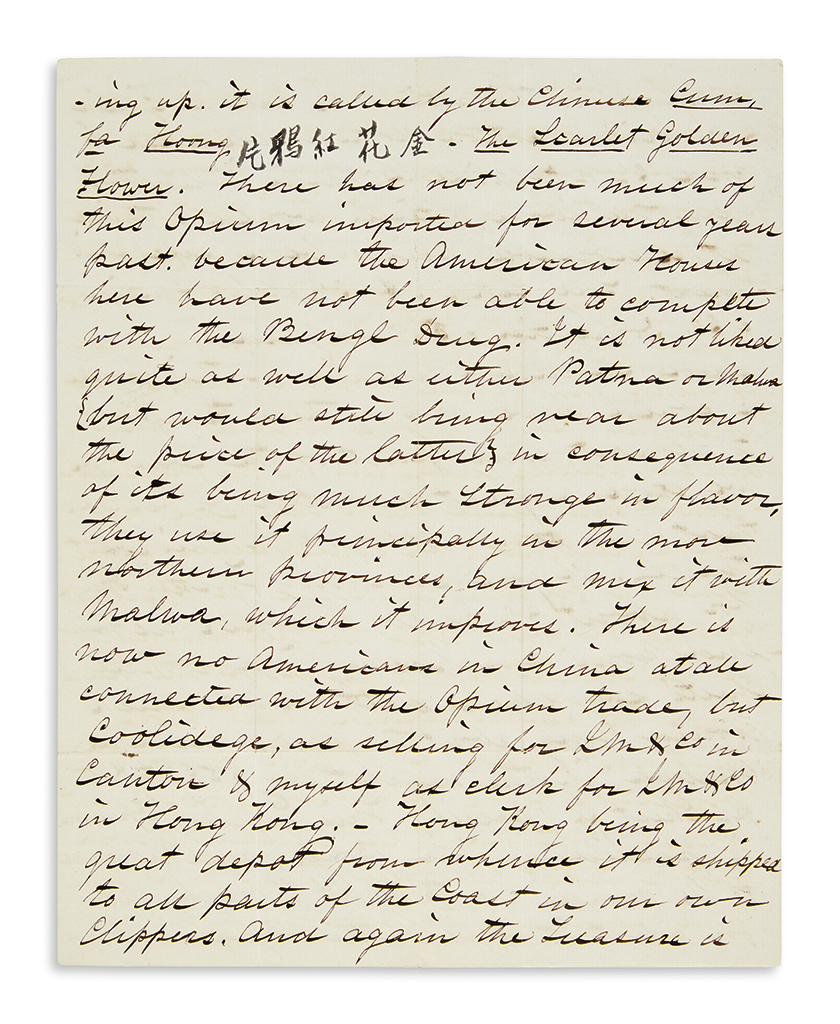 -ing up. it is called by the Chinese Cum,
fa Hoong, 片鴉紅花金 - The Scarlet Golden
Flower. There has not been much of
this Opium imported for several years
past. because the American Houses
here have not been able to compete
with the Bengl Drug. It is not liked
quite as well as either Patna or Malwa
{but would still bring near about
the price of the latter} in consequence
of its being much stronge in flavor,
they use it principally in the more
northern provinces, and mix it with
Malwa, which it improves. There is
now no Americans in China at all
connected with the Opium trade, but
Coolidege, as selling for JM & Co in
Canton & myself as clerk for JM & Co
in Hong Kong. - Hong Kong being the
great depot from whence it is shipped
to all parts of the Coast in our own
Clippers. And again the Treasure is